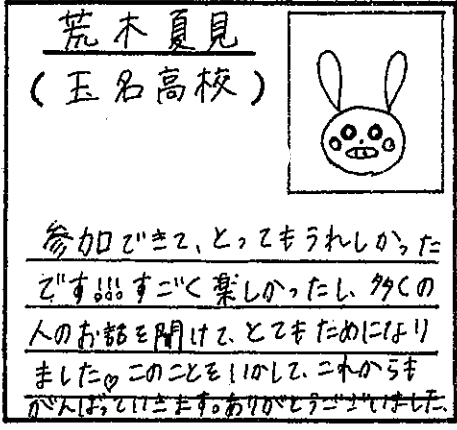 荒木夏見
(玉名高校)
参加できて、とってもうれしかった
です!!!すごく楽しかったし、多くの
人のお話を聞けて、とてもためになり
ました♡このことをいかして、これからも
がんばっていきます。ありがとうございました。